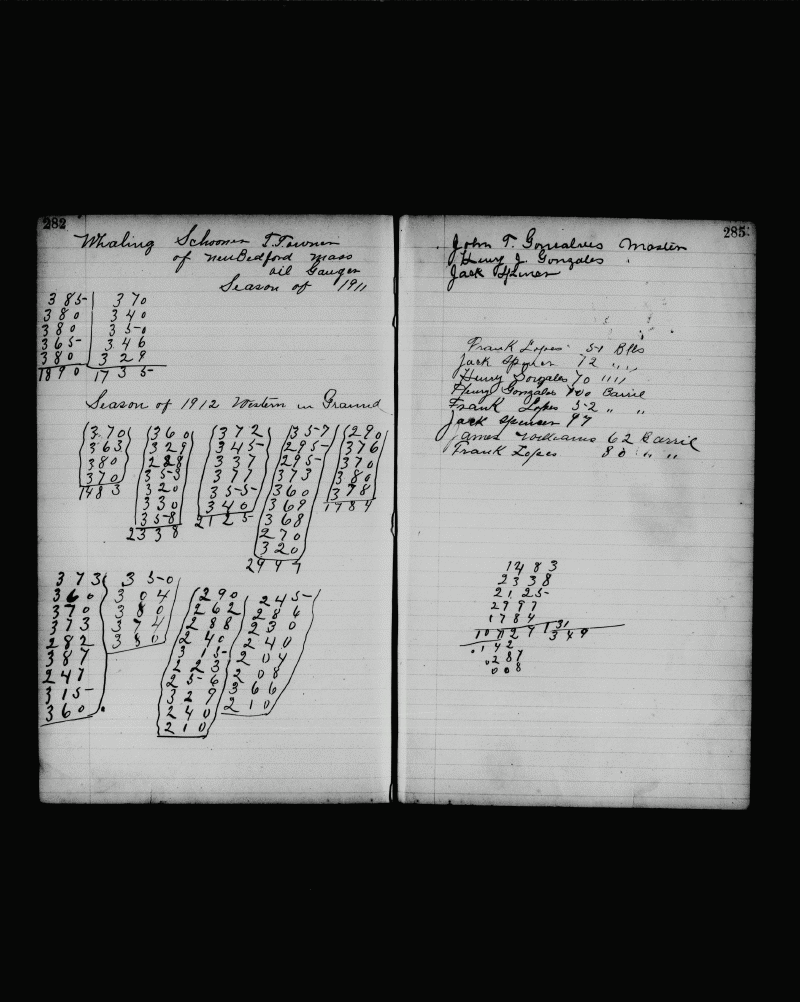 282
Whaling Schooner T. Towner
of New Bedford Mass
oil Gauger
Season of 1911
385 370
380 340
380 350
365 346
380 329
1890 1735
Season of 1912 Western in Ground
370 360 372 357 290
363 329 345 295 376
380 228 337 295 370
370 353 377 373 380
1483 320 355 360 378
330 340 369 1784
358 2125 368
2338 270
320
2997
373 350
360 304
370 380
373 394
282 380
387
247
315
360
290 245
262 286
288 230
240 240
315 204
223 208
256 366
329 210
240
210
285
John T. Gonsalves Master
Henry J. Gonzales
Jack Spencer
Frank Lopes 51 Bbls
Jack Spencer 72 " "
Henry Gonzales 70 " "
Henry Gonzales 100 Barril
Frank Lopes 52 " "
Jack Spencer 97
James Williams 62 Barril
Frank Lopes 80 " "
1483
2338
2125
2997
1784
10729 31
349
142
287
008